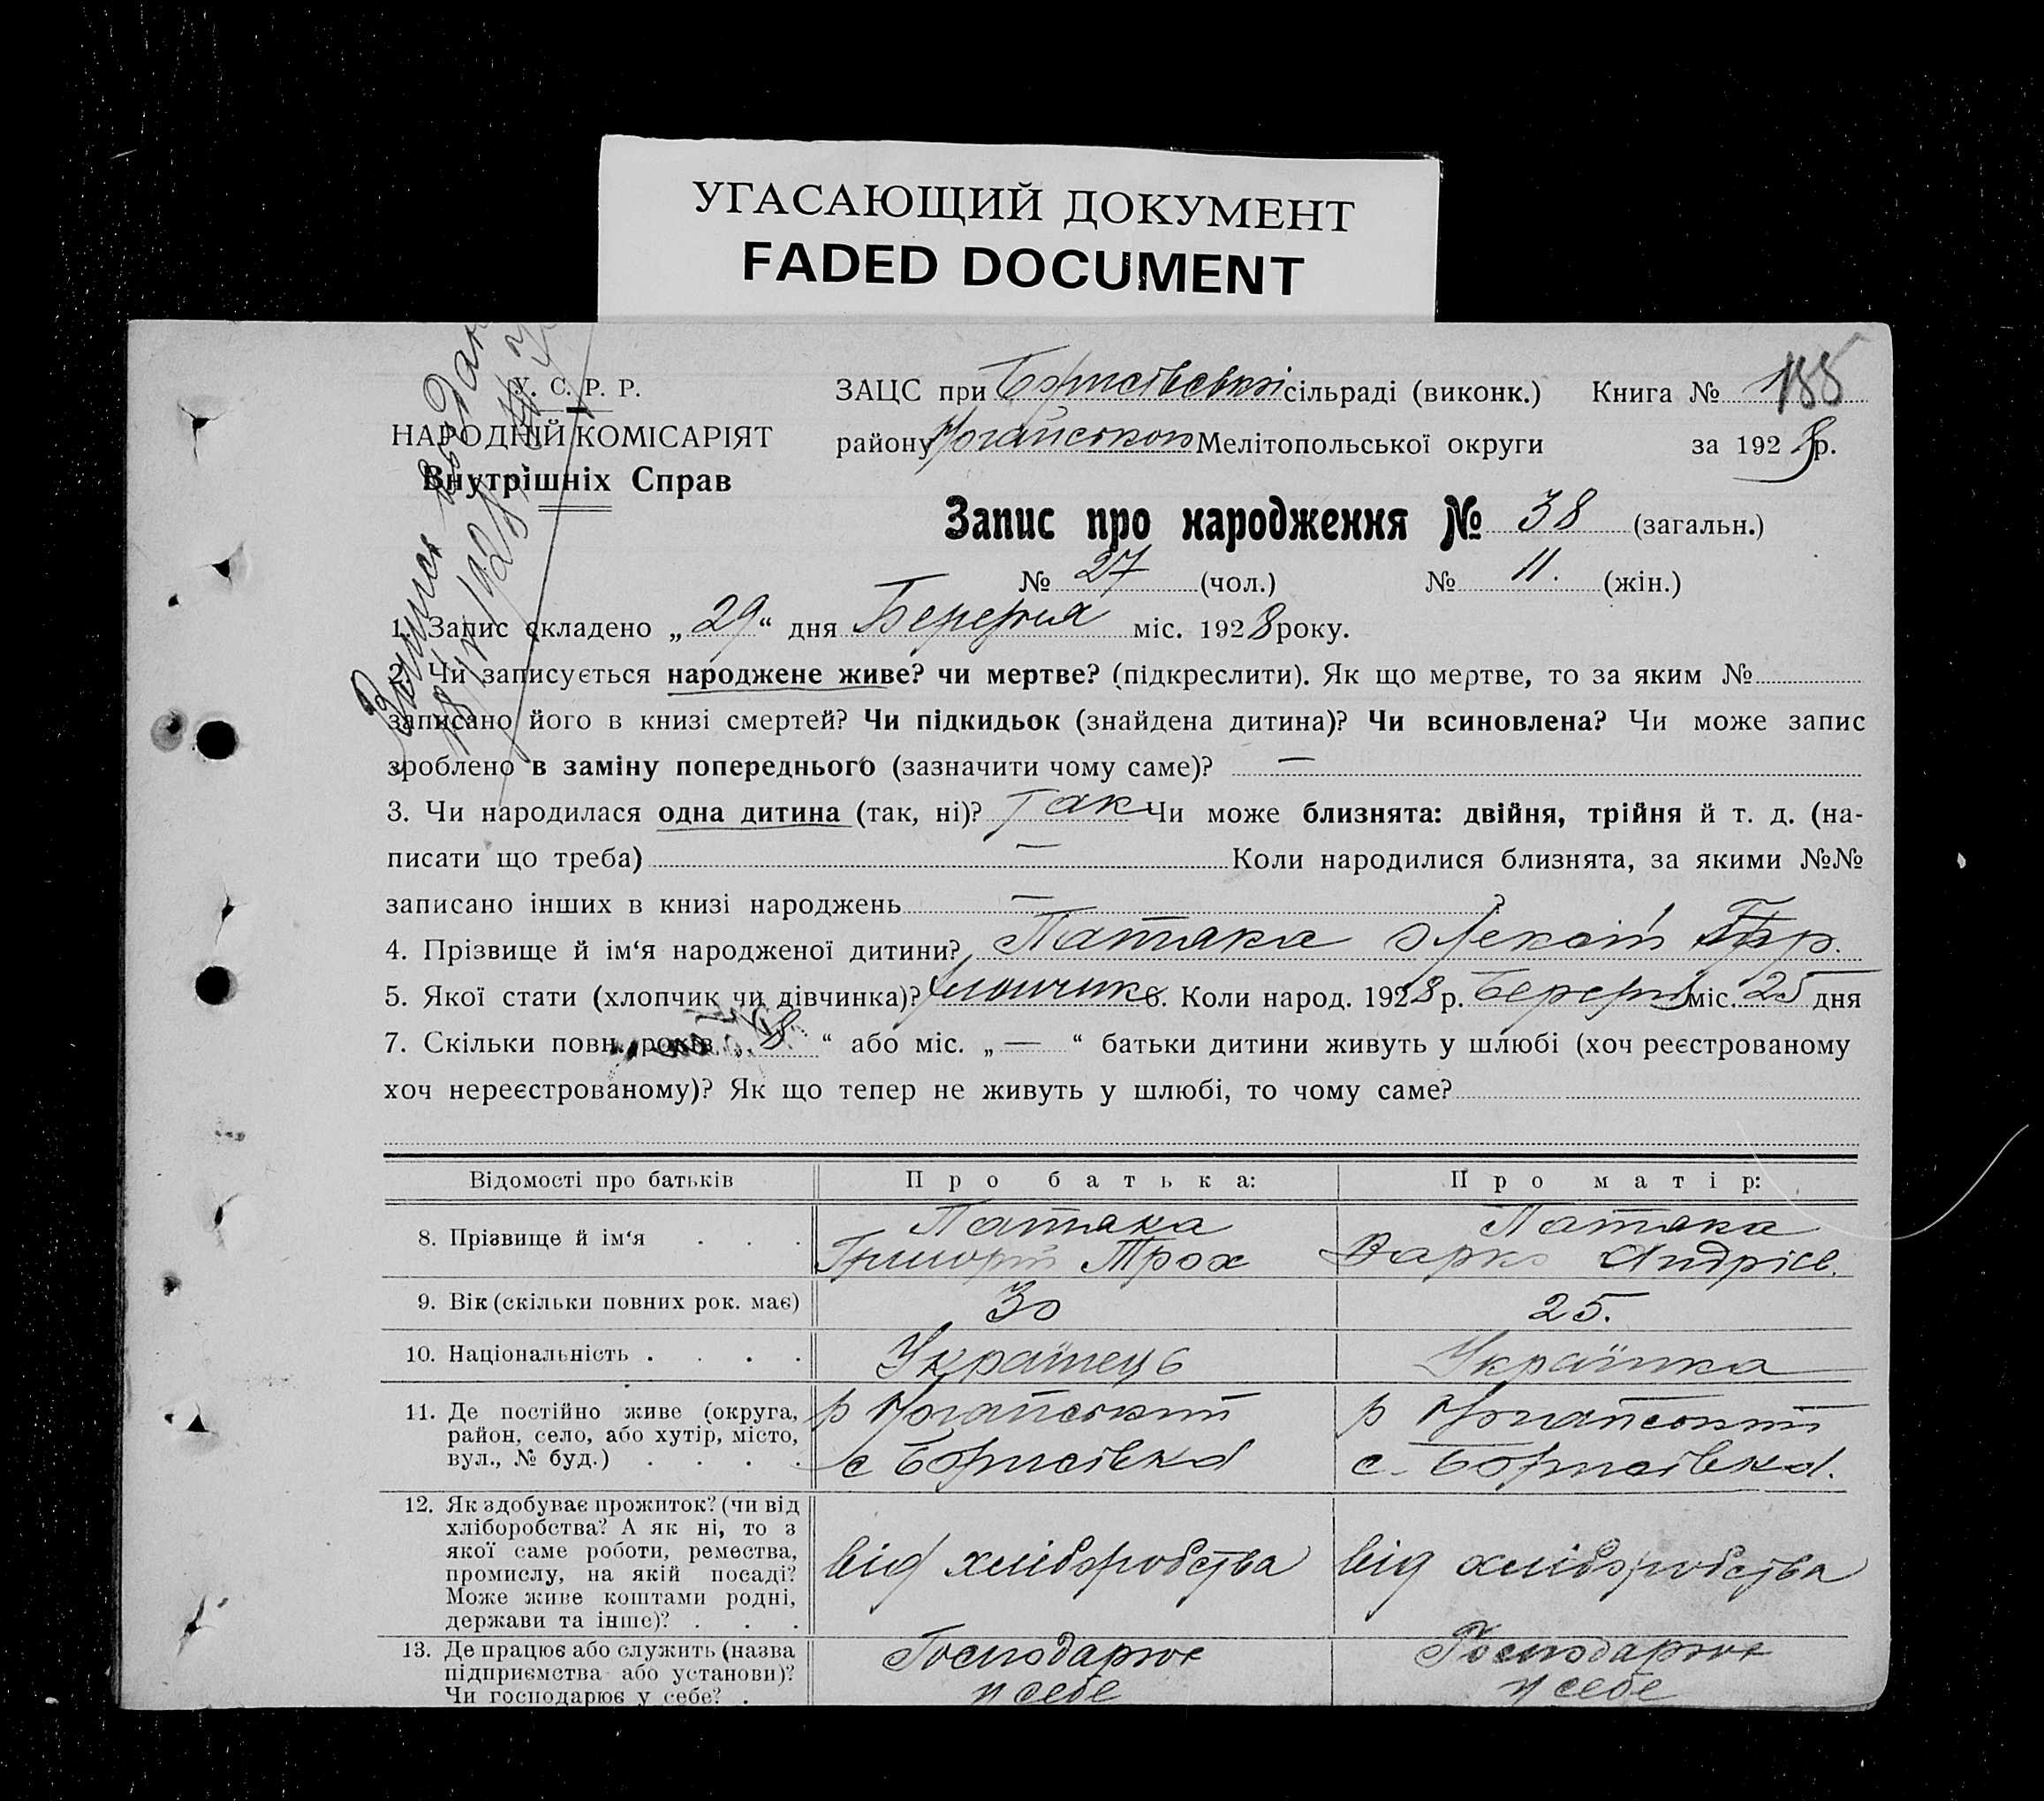 УГАСАЮЩИЙ ДОКУМЕНТ
FADED DOCUMENT
У. С. Р. Р.
НАРОДНІЙ КОМІСАРІЯТ
Внутрішніх Справ
ЗАЦС при Борисівській сільраді (виконк.) Книга №
району Ногайського Мелітопольської округи за 1928 р.
Запис про народження № 38 (загальн.)
№ 27 (чол.) № 11. (жін.)
1. Запис складено „29“ дня Березня міс. 1928 року.
2. Чи записується народжене живе? чи мертве? (підкреслити). Як що мертве, то за яким №
записано його в книзі смертей? Чи підкидьок (знайдена дитина)? Чи всиновлена? Чи може запис
зроблено в заміну попереднього (зазначити чому саме)? —
3. Чи народилася одна дитина (так, ні)? Так Чи може близнята: двійня, трійня й т. д. (на-
писати що треба) — Коли народилися близнята, за якими №№
записано інших в книзі народжень — ?
4. Прізвище й ім‘я народженої дитини? Патяка
5. Якої стати (хлопчик чи дівчинка)? хлопчик 6. Коли народ. 1928 р. Березня міс. 25 дня
7. Скільки повн. років „8“ або міс. „—“ батьки дитини живуть у шлюбі (хоч реєстрованому
хоч нереєстрованому)? Як що тепер не живуть у шлюбі, то чому саме?
Відомості про батьків Про батька: Про матір:
8. Прізвище й ім‘я . . . Патяка Григорій Трох Патяка Варка Андрієв.
9. Вік (скільки повних рок. має) 30 25.
10. Національність . . . . Українець Українка
11. Де постійно живе (округа,
район, село, або хутір, місто,
вул., № буд.) . . . .
р Ногайський
с Борисівка
р Ногайський
с. Борисівка.
12. Як здобуває прожиток? (чи від
хліборобства? А як ні, то з
якої саме роботи, ремества,
промислу, на якій посаді?
Може живе коштами родні,
держави та інше)? . . .
від хліборобства від хліборобства
13. Де працює або служить (назва
підприємства або установи)?
Чи господарює у себе? .
Господарює
у себе
Господарює
у себе